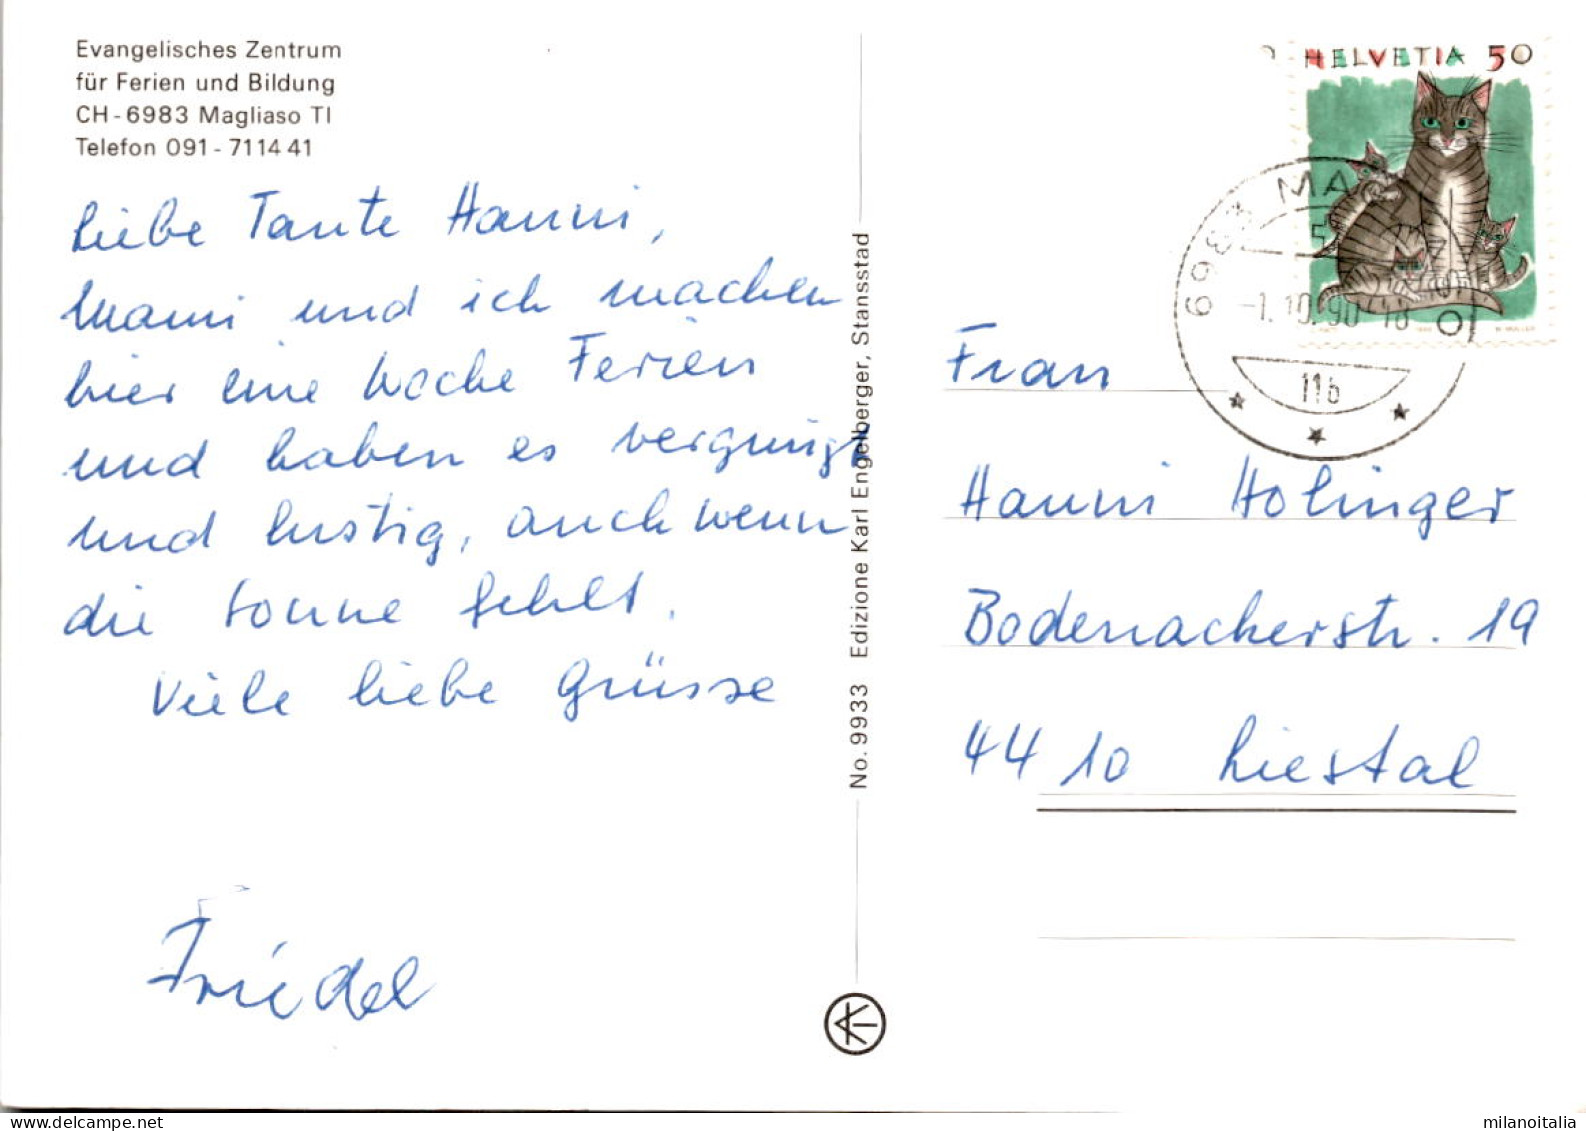 Evangelisches Zentrum
für Ferien und Bildung
CH-6983 Magliaso TI
Telefon 091-7114 41
Liebe Tante Hanni,
Mami und ich machen
hier eine Woche Ferien
und haben es vergnügt
und lustig, auch wenn
die Sonne fehlt.
Viele liebe Grüsse
Friedel
No. 9933 Edizione Karl Engelberger, Stansstad
HELVETIA 50
6983 MA
-1.10.90-18
11b
Frau
Hanni Holinger
Bodenackerstr. 19
4410 Liestal
milanoitalia